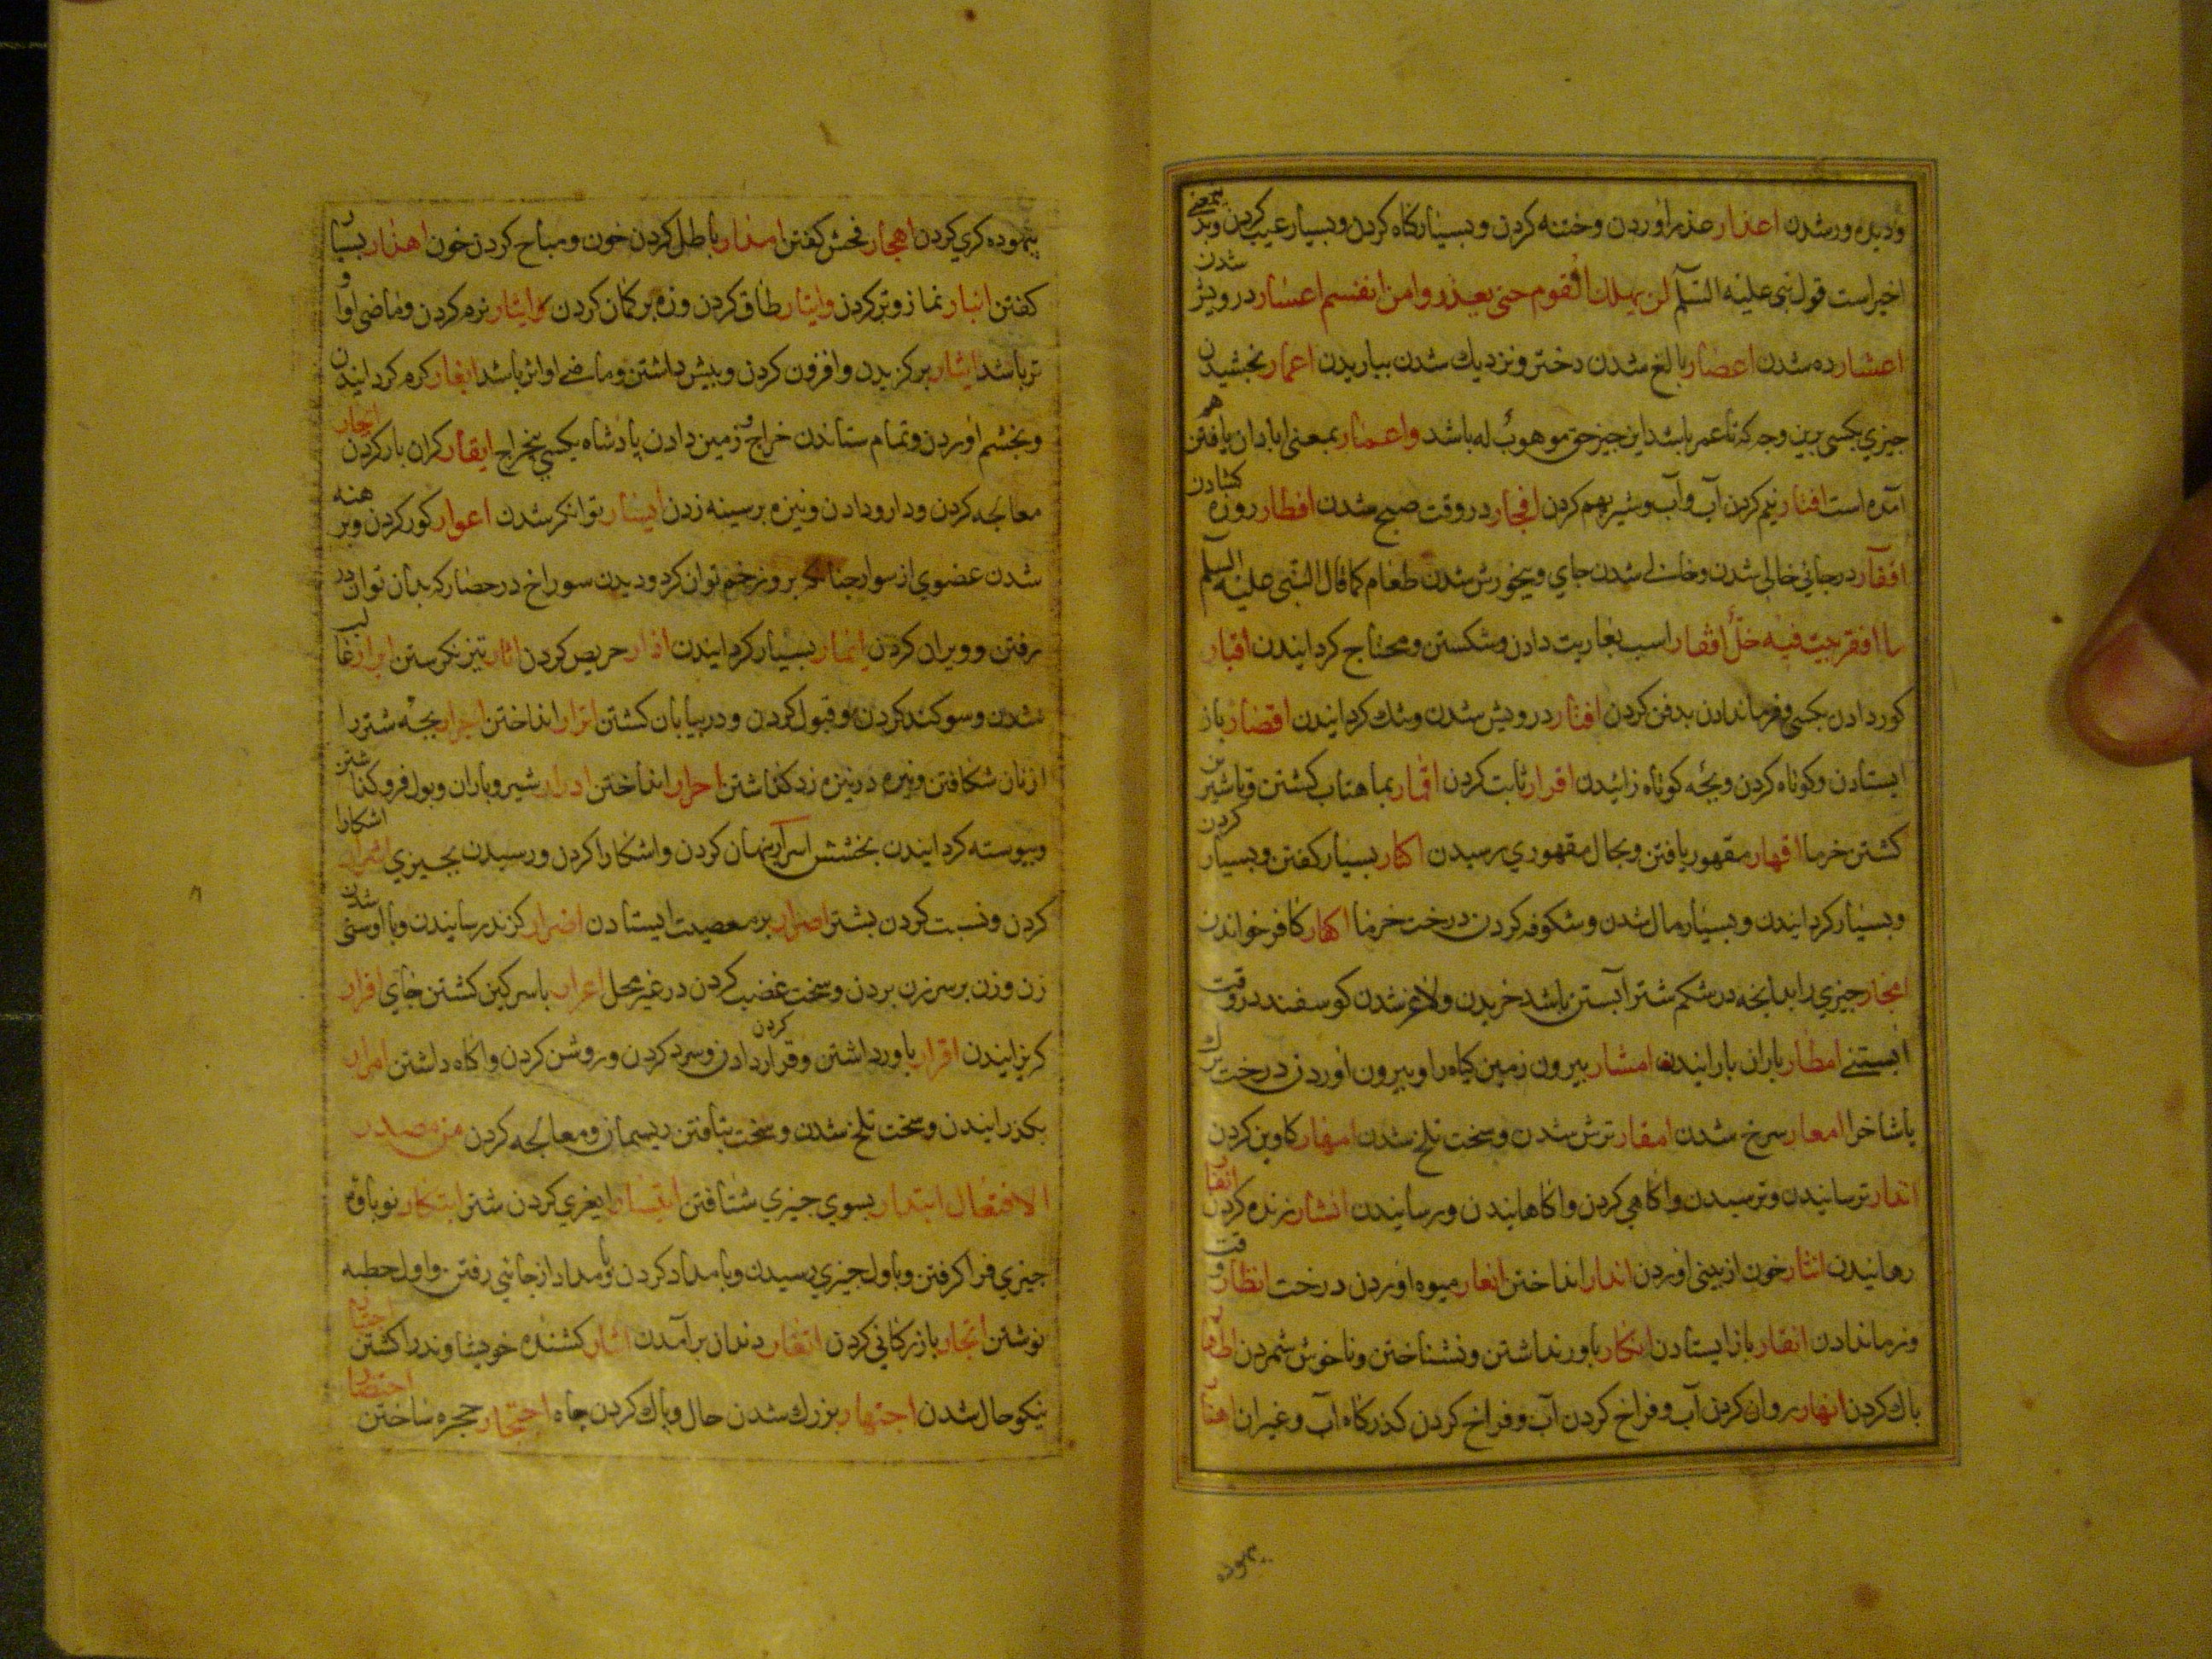 و دیده ور شدن اعذار عذر اوردن و ختنه کردن و بسیار کاه کردن و بسیار عیب کردن و بد بمعنی
اخیر است قول نبی علیه السلم لن یهلک القوم حتی یعذروا من انفسهم اعسار درویش شدن
اعشار ده شدن اعصار بالغ شدن دختر و نزدیک شدن بباریدن اعمار بخشیدن
جیزی بکسی برین وجه که تا عمر باشد این جیز حق موهوب له باشد و اعمار بمعنی ابادان یافتن هم
آمده است افتار نیم کردن آب و آب و شیر بهم کردن افجار در وقت صبح شدن افطار روزه کشادن
اقفار در جائی خالی شدن و خالی شدن جای و بیخورش شدن طعام کما قال النبی علیه السلم
ما افقر بیت فیه خل افقار اسب بعاریت دادن و شکستن و محتاج کردانیدن اقبار
کور دادن بکسی و فرماندادن بدفن کردن اقتار درویش شدن و تنک کردانیدن اقصار باز
ایستادن و کوتاه کردن و بجه کوتاه زائیدن اقرار ثابت کردن اقمار بماهتاب کشتن و با شیر
کشتن خرما اقهار مقهور یافتن و بحال مقهوری رسیدن اکثار بسیار کفتن و بسیار کردن
و بسیار کردانیدن و بسیار مال شدن و شکوفه کردن درخت خرما اکفار کافر خواندن
امجار جیزی را بدانجه در شکم شتر آبستن باشد خریدن و لاغر شدن کوسفند در وقت
ابستنی امطار باران بارانیدن امشار بیرون زمین کیاه را و بیرون اوردن درخت برک
یا شاخ را امعار سرخ شدن امقار ترش شدن و سخت تلخ شدن امهار کاوین کردن
انذار ترسانیدن و ترسیدن و اکاهی کردن و اکاهانیدن و رسانیدن انشار زنده کردن انفار
رهانیدن انثار خون از بینی اوردن اندار انداختن انعار میوه اوردن درخت انظار وقت
و زمان دادن انقار باز ایستادن انکار باور نداشتن و نشناختن و ناخوش شمردن اطها
باک کردن انهار روان کردن آب و فراخ کردن آب و فراخ کردن کذرکاه آب و غیر ان اهتا
بیهوده
بیهوده کری کردن اهجار فحش کفتن اهدار باطل کردن خون و مباح کردن خون اهذار بسیار
کفتن انبار نماز وتر کردن و ایتار طاق کردن و زه بر کمان کردن و ایثار نرم کردن و ماضی او
تر باشد ایثار بر کزیدن و افزون کردن و بیش داشتن و ماضی او اثر باشد ایغار کرم کردانیدن
و بخشم اوردن و تمام ستاندن خراج و زمین دادن پادشاه بکسی بیخراج ایقار کران بار کردن ایجار
معالجه کردن و دارو دادن و نیزه بر سینه زدن ایسار توانکر شدن اعوار کور کردن و برهنه
شدن عضوی از سوار جنانکه برو زخم توان کرد و دیدن سوراخ در حصار که بدان توان در
رفتن و ویران کردن اثمار بسیار کردانیدن اذار حریص کردن اتار تیز نکرستن ابرار غالب
شدن و سوکند کردن و قبول کردن و در بیابان کشتن اترار انداختن اجرار بجه شتر را
زبان شکافتن و نیزه در نیزه زد کذاشتن احرار انداختن ادرار شیر و باران و بول فرو کذاشتن
و بیوسته کردانیدن بخشش اسرار پنهان کردن و اشکارا کردن و رسیدن بجیزی اشرار اشکارا
کردن و نسبت کردن بشر اصرار بر معصیت ایستادن اضرار کزند رسانیدن و با اوسنی شدن
زن و زن بر سر زن بردن و سخت غضب کردن در غیر محل اعرار با سرکین کشتن جای افرار
کریزانیدن اقرار باور داشتن و قرار دادن و سرد کردن و روشن کردن و اکاه داشتن امرار
بکذرانیدن و سخت تلخ شدن و سخت بتافتن ریسمان و معالجه کردن من مصدر
الافتعال ابتدار بسوی جیزی شتافتن ابتسار بغری کردن شتر ابتکار نوباوه
جیزی فرا کرفتن و باول جیزی رسیدن و بامداد کردن و بامداد از جائی رفتن و اول خطبه
نوشتن اتجار بازرکانی کردن اتغار دندان برآمدن اثار کشنده خویشاوند را کشتن
نیکو حال شدن اجتهار بزرک شدن حال و باک کردن جاه احتجار حجره ساختن احتضار